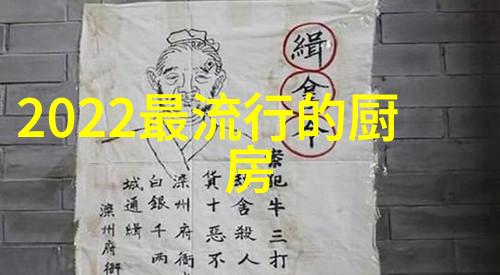 2022最流行的厨
房
緝
案犯牛三打
舍殺人
貨十惡不
滦州府衙
白銀千兩
城通緝
滦州府衙